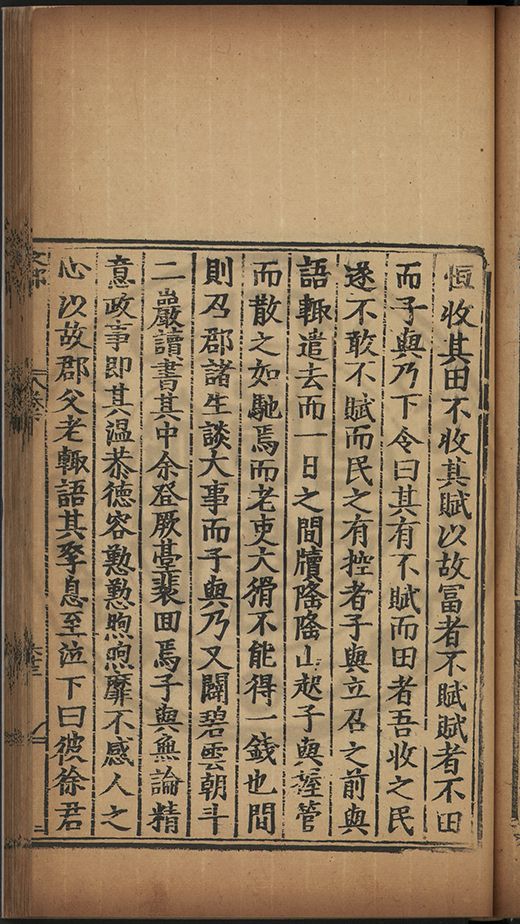 恒收其田不收其賦以故冨者不賦賦者不田
而子與乃下令曰其有不賦而田者吾收之民
遂不敢不賦而民之有控者子與立召之前與
語輙遣去而一日之間牘隆隆山起子與握管
而散之如馳焉而老吏大猾不能得一錢也間
則召郡諸生談大事而子與乃又闢碧雲朝斗
二巖讀書其中余登厥臺裴囬焉子與無論精
意政事即其温恭德容懃懃煦煦靡不感人之
心以故郡父老輙語其孥息至泣下曰彼徐君